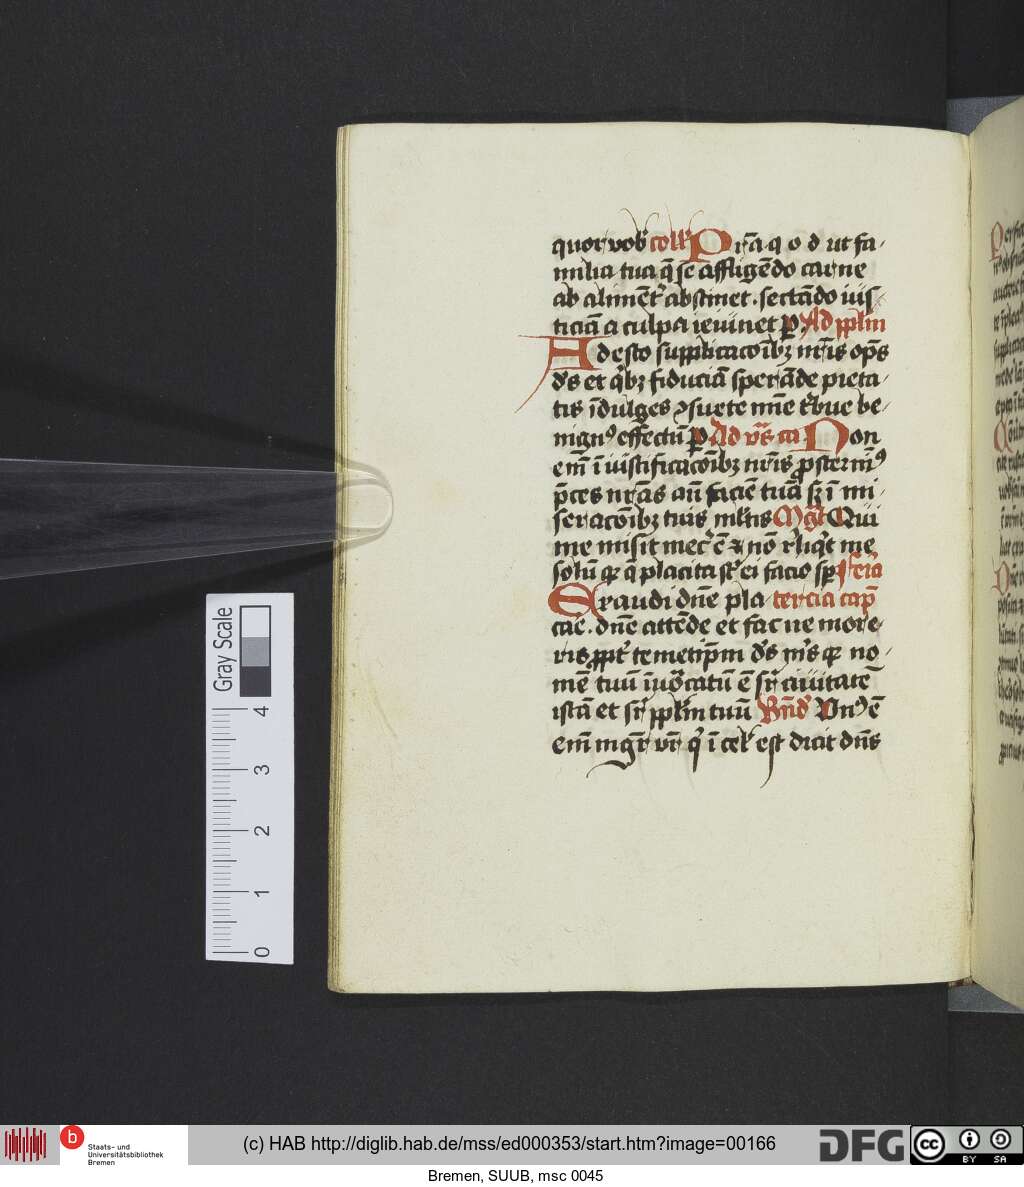 quor vob̾ coll̾ Pr̄a q o d ut fa
milia tua q̄ se affligēdo carne
ab aliment̾ abstinet . sectādo ius
ticiā a culpa ieiunet p̱ Ad pplm
Adesto supplicacōibꝫ nr̄is op̄s
d̄s et q̾bꝫ fiduciā sperāde pieta
tis īdulges ɔsuete mīe t̾bue be
nignꝰ effectū p̱ Ad vr̄s ca Non
em̄ ī iustificacōibꝫ nr̄is ꝓsternimꝰ
p̄ces nr̄as an̄ faciē tuā sꝫ ī mi
seracōibꝫ tuis ml̾tis Mgt̄ Qui
me misit mec̄ ē ⁊ nō r̾liq̾t me
solū qr q̄ placita st̄ ei facio sp̱ fe̾ia
Exaudi dn̄e pla tercia cap̄
cae . dn̄e attēde et fac ne more
ris ꝓpt̾ temetip̄m d̄s m̄s qr no
mē tuū īuocatū ē sr̄ ciuitatē
istā et sr̄ pplm̄ tuū Bn̄d̾ Vnꝰ ē
em̄ mgr̄ vr̄ q̾ ī cel̾ est dicit dn̄s
Gray Scale
4
3
2
1
0
b
Staats- und
Universitätsbibliothek
Bremen
(c) HAB http://diglib.hab.de/mss/ed000353/start.htm?image=00166
DFG
cc
BY SA
Bremen, SUUB, msc 0045